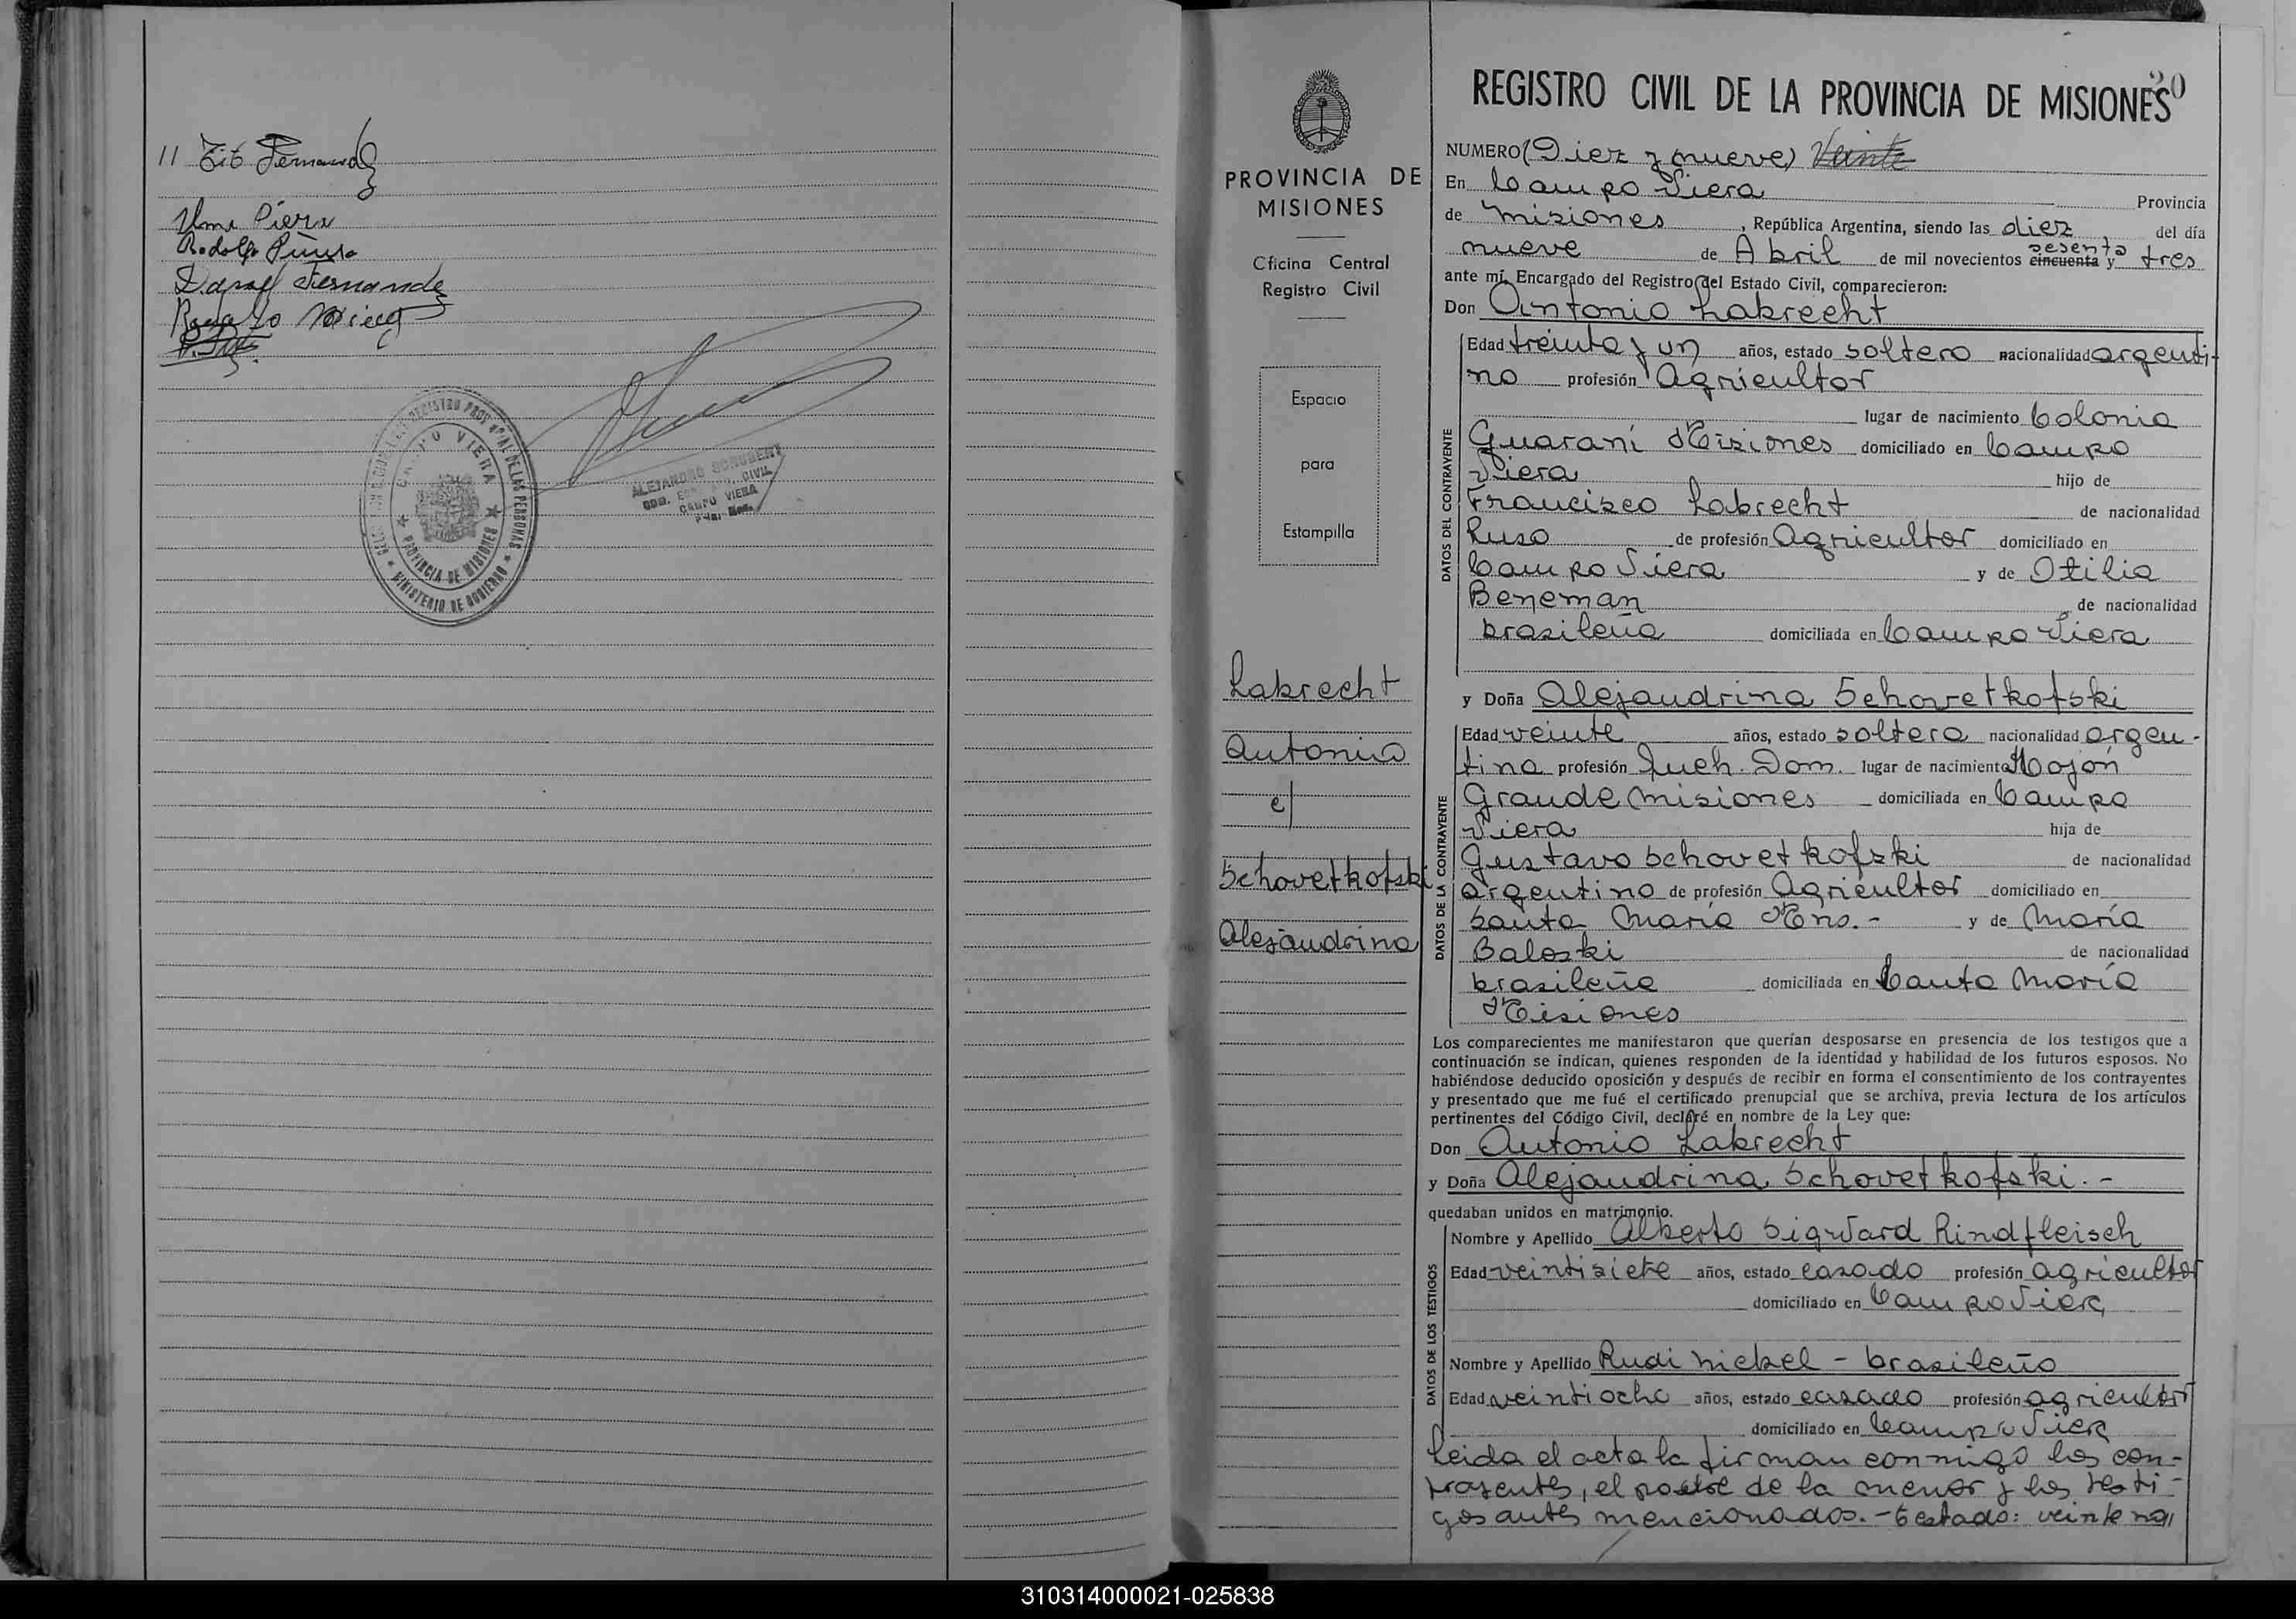 11 Tito Fernandez
Piera
Rodolfo
Fernandez
CAMPO VIERA
PROVINCIA DE MISIONES
MINISTERIO DE GOBIERNO
ALEJANDRO SCHUBERT
CAMPO VIERA
PROVINCIA DE
MISIONES
Oficina Central
Registro Civil
Espacio
para
Estampilla
Labrecht
Antonio
c/
Schovetkofski
Alejandrina
20
REGISTRO CIVIL DE LA PROVINCIA DE MISIONES
NUMERO (Diez y nueve) Veinte
En Campo Viera Provincia
de Misiones, República Argentina, siendo las diez del día
nueve de Abril de mil novecientos cincuenta sesenta y tres
ante mí, Encargado del Registro del Estado Civil, comparecieron:
Don Antonio Labrecht
DATOS DEL CONTRAYENTE
Edad treinta y un años, estado soltero nacionalidad argenti-
no profesión Agricultor
lugar de nacimiento Colonia
Guaraní Misiones domiciliado en Campo
Viera hijo de
Francisco Labrecht de nacionalidad
Ruso de profesión Agricultor domiciliado en
Campo Viera y de Otilia
Beneman de nacionalidad
brasileña domiciliada en Campo Viera
y Doña Alejandrina Schovetkofski
DATOS DE LA CONTRAYENTE
Edad veinte años, estado soltera nacionalidad argen-
tina profesión Queh. Dom. lugar de nacimiento Mojón
Grande Misiones domiciliada en Campo
Viera hija de
Gustavo Schovetkofski de nacionalidad
argentino de profesión Agricultor domiciliado en
Santa María Mns.- y de María
Baloski de nacionalidad
brasileña domiciliada en Santa María
Misiones
Los comparecientes me manifestaron que querían desposarse en presencia de los testigos que a
continuación se indican, quienes responden de la identidad y habilidad de los futuros esposos. No
habiéndose deducido oposición y después de recibir en forma el consentimiento de los contrayentes
y presentado que me fué el certificado prenupcial que se archiva, previa lectura de los artículos
pertinentes del Código Civil, declaré en nombre de la Ley que:
Don Antonio Labrecht
y Doña Alejandrina Schovetkofski.-
quedaban unidos en matrimonio.
DATOS DE LOS TESTIGOS
Nombre y Apellido Alberto Sigward Rindfleisch
Edad veintisiete años, estado casado profesión agricultor
domiciliado en Campo Viera
Nombre y Apellido Rudi Nickel - brasileño
Edad veintiocho años, estado casado profesión agricultor
domiciliado en Campo Viera
Leida el acta la firman conmigo los con-
trayentes, el padre de la menor y los testi-
gos antes mencionados.- Testado: veinte no//
310314000021-025838